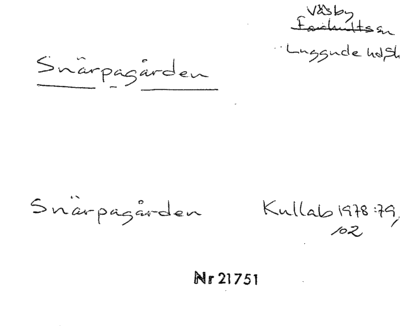 Väsby
Luggude hd, Sk
Snärpagården
Snärpagården Kullab 1978:79,
102
Nr 21751